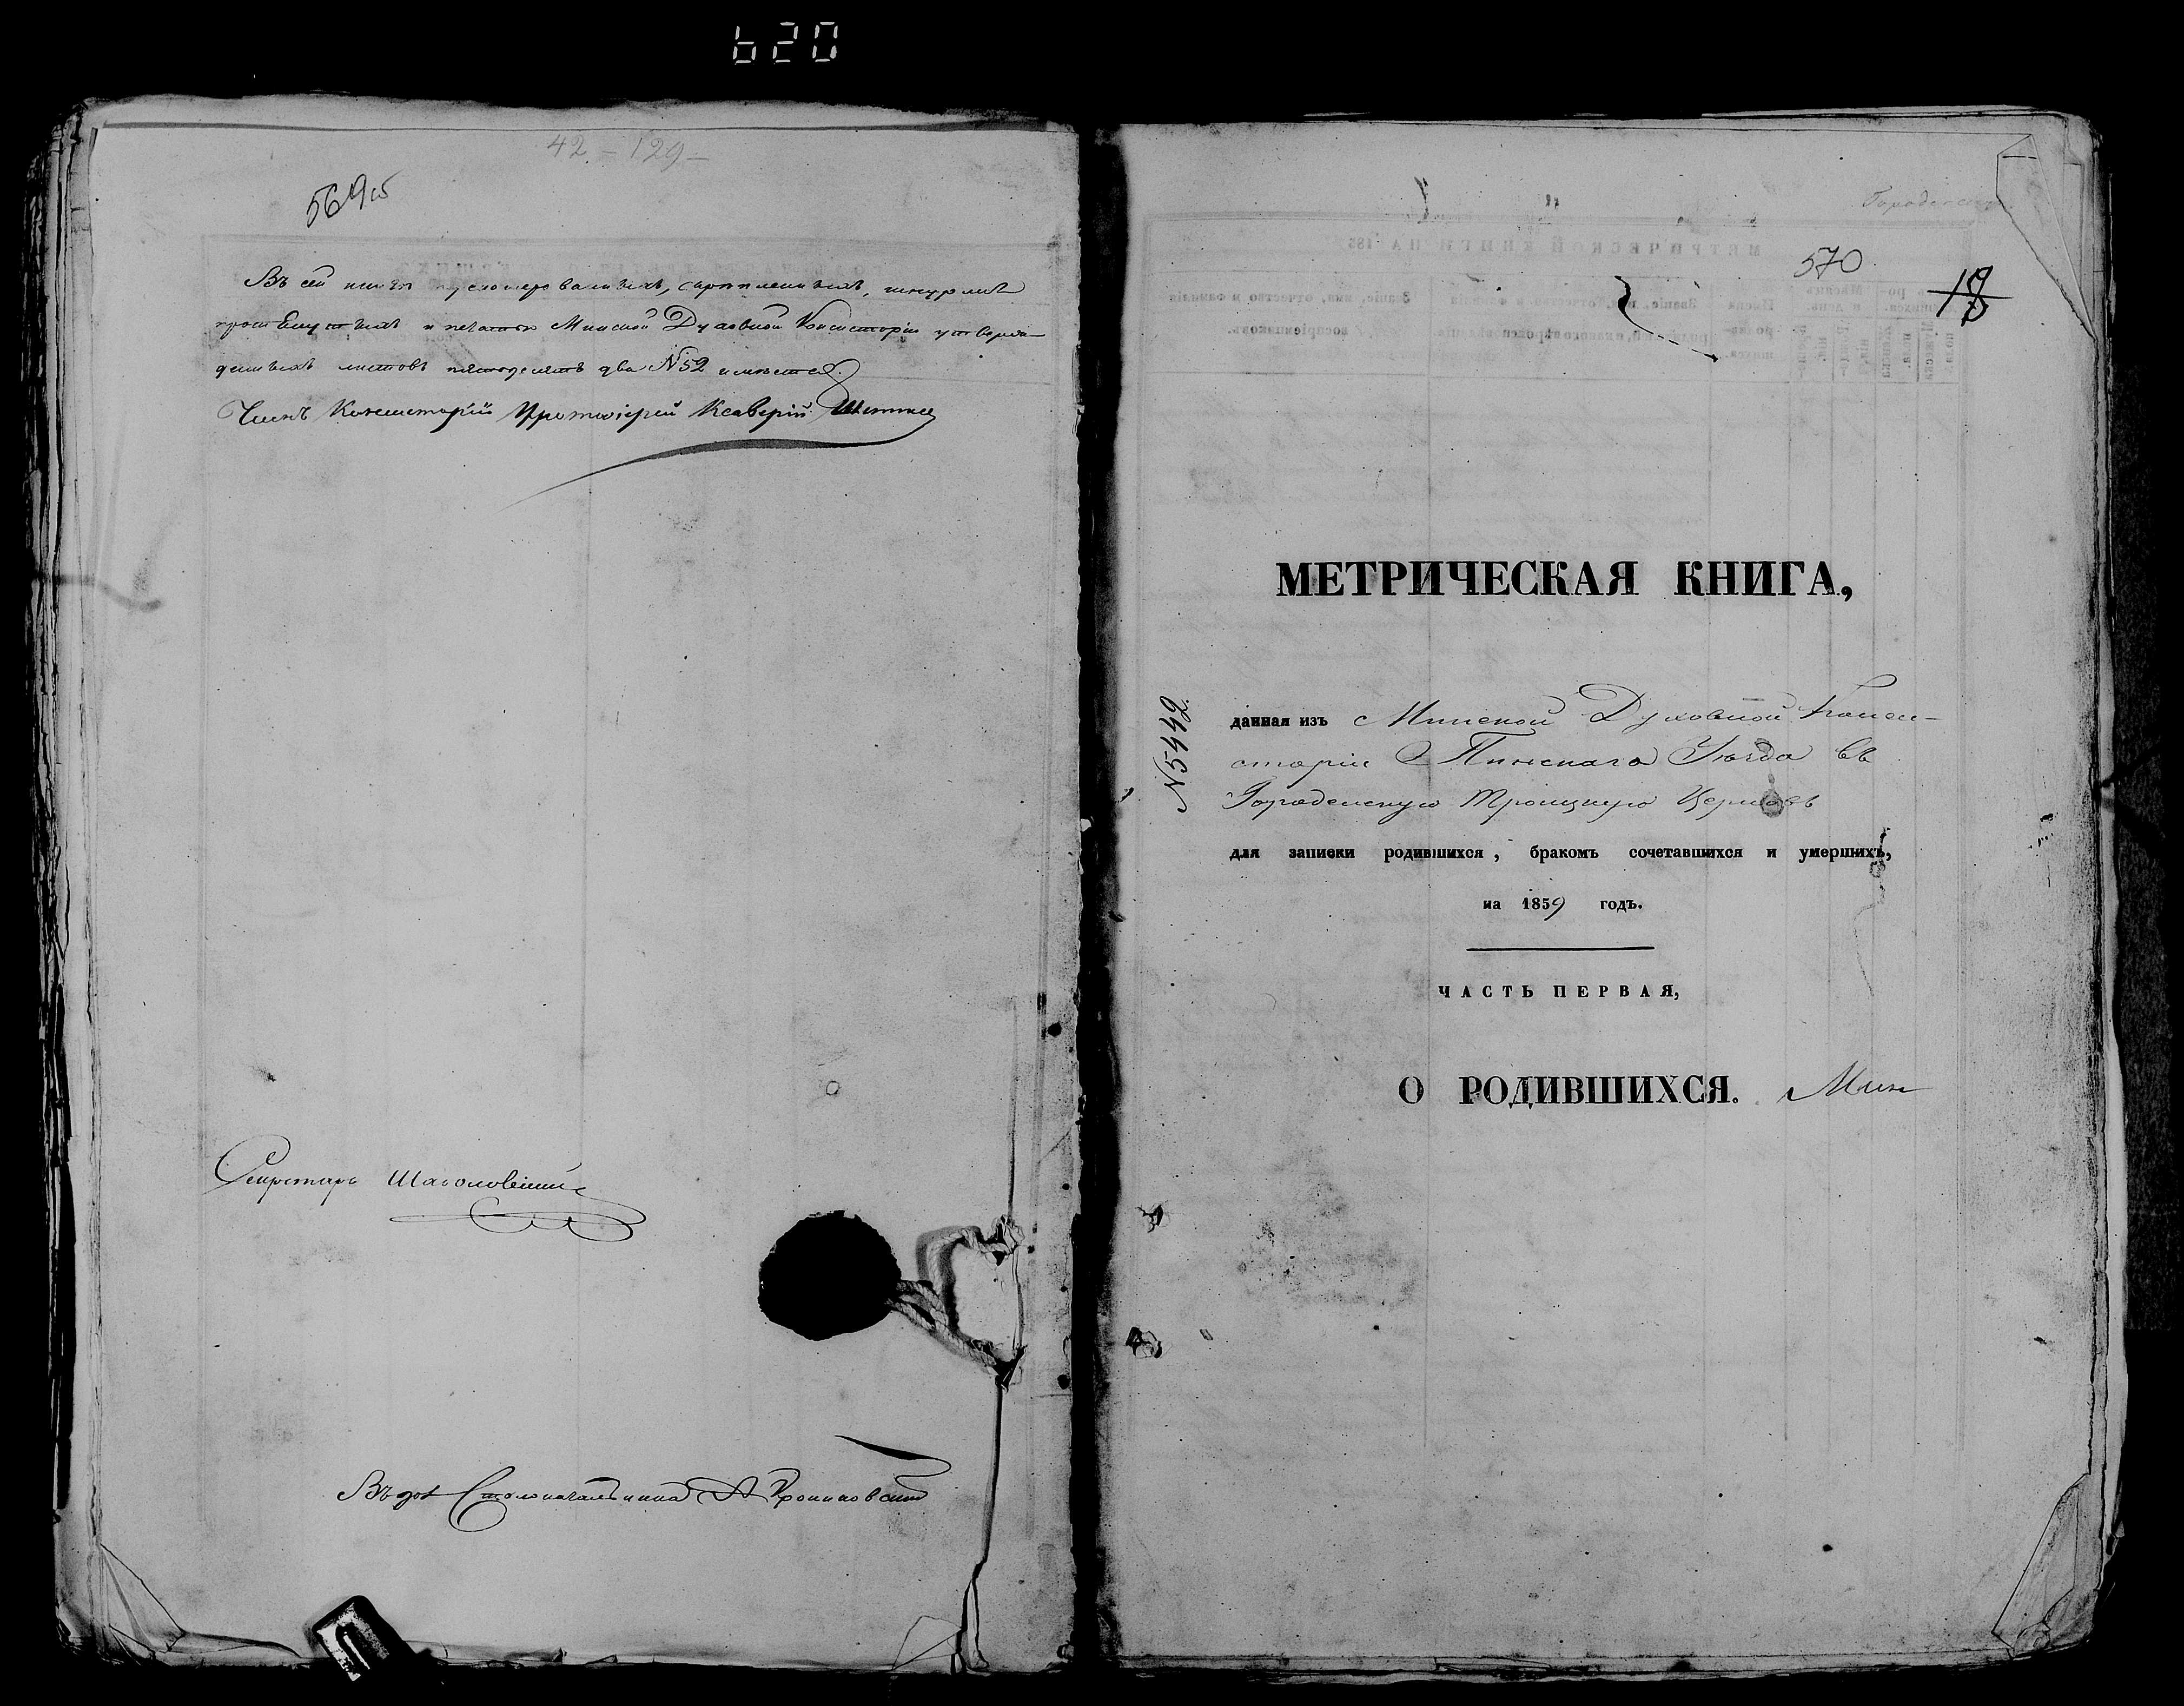 620
42 - 129 -
569 об
Въ сей книгѣ нумерованныхъ, скрѣпленныхъ, шнуромъ
прошнутыхъ и печатью Минской Духовной Консисторіи утверж-
денныхъ листовъ пятьдесятъ два № 52 имѣется.
Членъ Консисторіи Протоіерей Ксаверій
Секретарь
Столоначальника
570
МЕТРИЧЕСКАЯ КНИГА,
№ 5442.
данная изъ Минской Духовной Конси-
сторіи Пинскаго Уѣзда въ
Городенскую Троицкую Церковь
для записки родившихся, бракомъ сочетавшихся и умершихъ,
на 1859 годъ.
ЧАСТЬ ПЕРВАЯ,
О РОДИВШИХСЯ. Мин